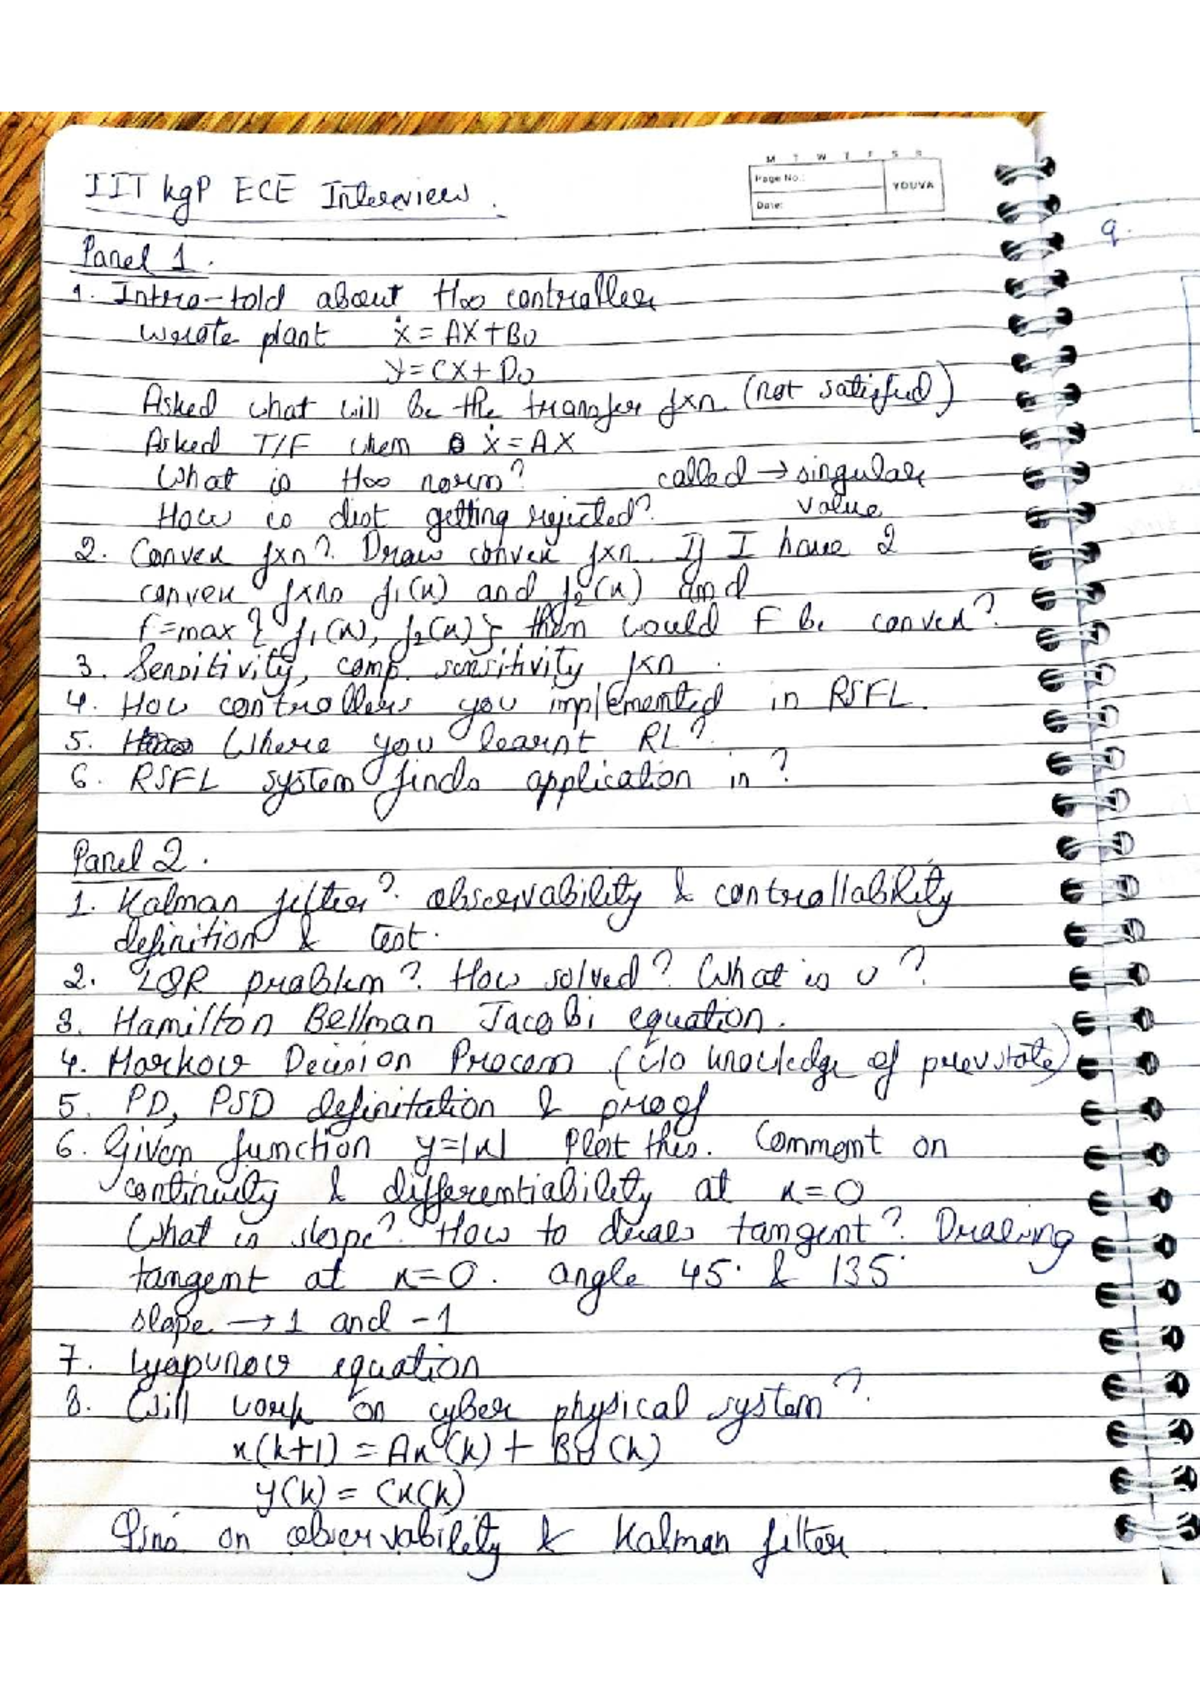 M T W T F S S
Page No.:
YOUVA
Date:
IIT kgP ECE Interview.
Panel 1.
1. Intro-told about H∞ controller
wrote plant ẋ = AX+BU
y = CX+DU
Asked what will be the transfer fxn (not satisfied)
Asked T/F when ẋ = AX
What is H∞ norm? called → singular
How is dist getting rejected? value
2. Convex fxn? Draw convex fxn. If I have 2
convex fxns f₁(x) and f₂(x) and
F=max{f₁(x), f₂(x)} then would F be convex?
3. Sensitivity, comp. sensitivity fxn.
4. How controllers you implemented in RSFL.
5. Where you learnt RL?
6. RSFL system finds application in?
Panel 2.
1. Kalman filter? observability & controllability
definition & test.
2. LQR problem? How solved? What is u?
3. Hamilton Bellman Jacobi equation.
4. Markov Decision Process (i/o knowledge of prev state)
5. PD, PSD definitation & proof
6. Given function y=|x| Plot this. Comment on
continuity & differentiability at x=0
What is slope? How to draw tangent? Drawing
tangent at x=0. angle 45° & 135°
slope → 1 and -1
7. Lyapunov equation
8. Will work on cyber physical system?
x(k+1) = Ax(k) + BU(k)
y(k) = Cx(k)
on observability & Kalman filter
9.